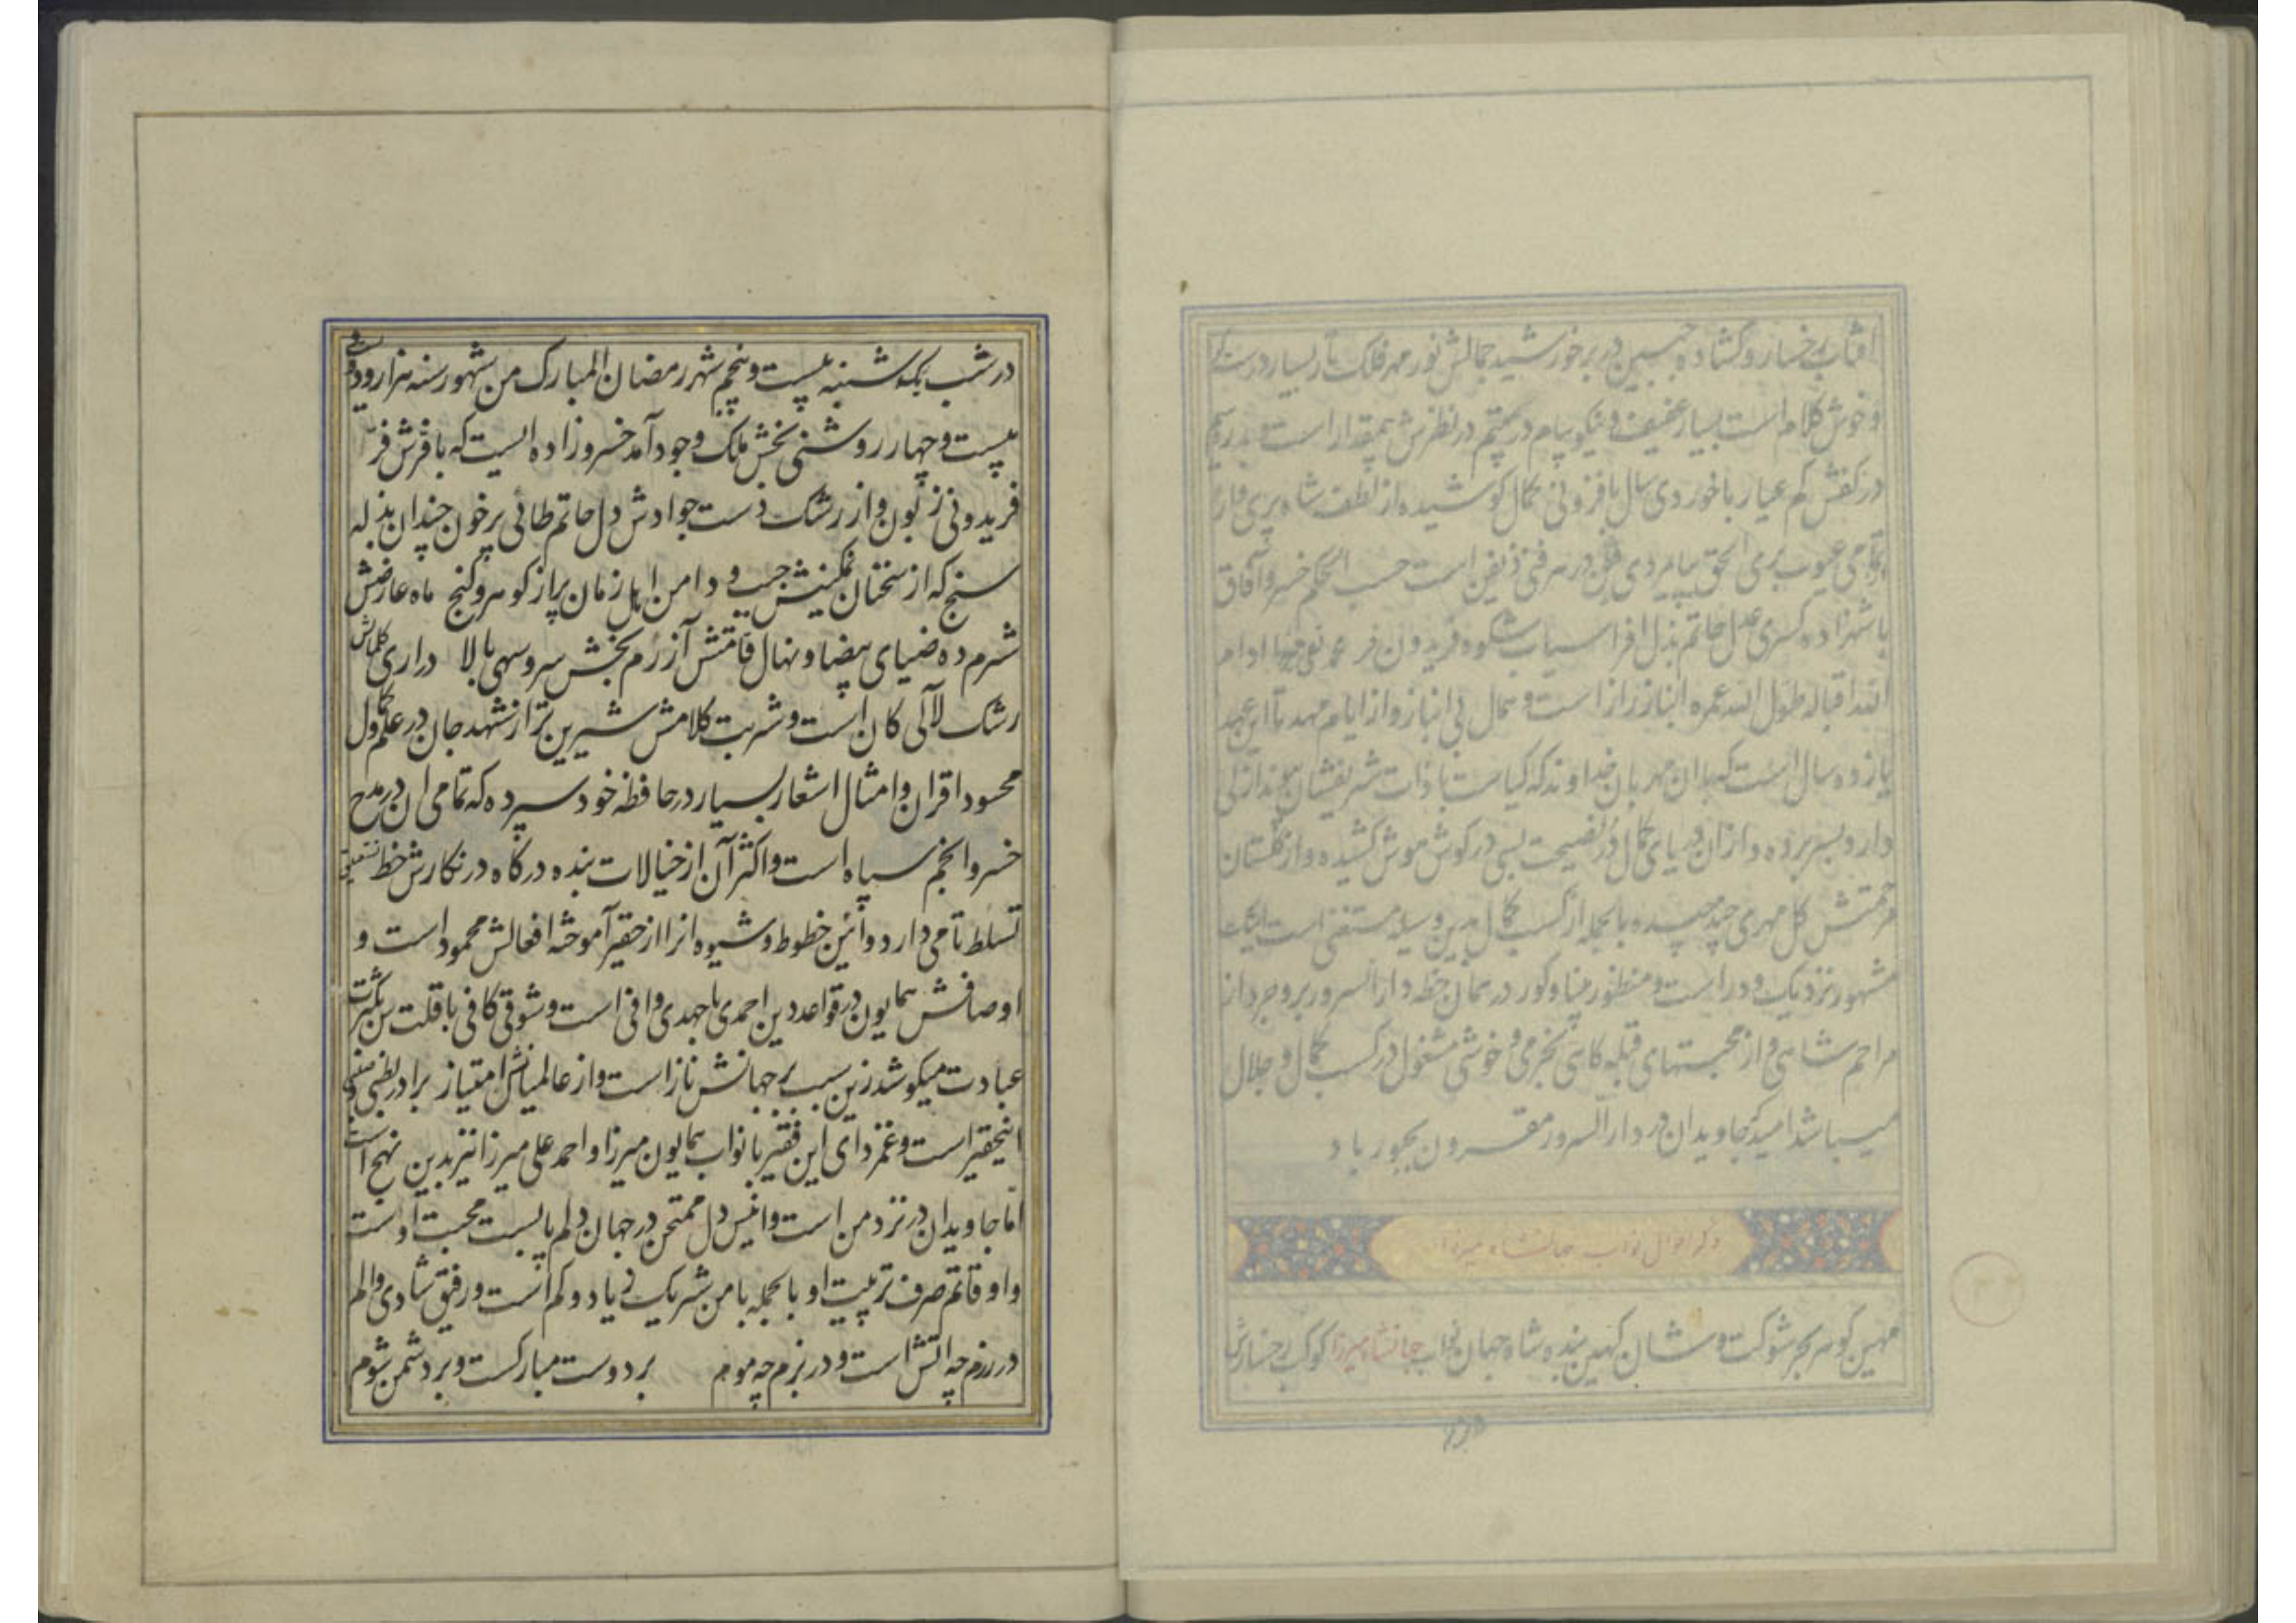 افتاب رخسار و کشاده جبین در بر خورشید جمالش نور مهر فلک تار بسیار درست
و خوش کلام است بسیار عفیف و نیکو پیام درهم در نظرش بیمقدار است
در کفش کم عیار با خوردی سال بافزونی کمال کوشیده از لطف شاه پری
عیوب بری الحق بیامردی در هر فنی ذیفن است حسب الحکم خسرو آفاق
با شهزاده کسری عدل حاتم بذل افراسیاب شکوه فریدون فر محمد تقی میرزا ادام
الله اقباله و طول الله عمره انباز راز است و بمال بی انباز و از ایام مهد تا این عهد
یازده سال است که با ان مهربان خداوند که کیاست با ذات شریفشان
دارد بسر برده و ازان دریای کمال در نصیحت بسی در کوش هوش کشیده و از کلستان
مرحمتش کل مهری چند چیده بالجمله از کسب کمال بدین وسیله مستغنی است
مشهور نزدیک و دور است و منظور بینا و کور در همان خطه دارالسرور بروجرد از
مراحم شاهی و از محبتهای قبله کاهی بخرمی و خوشی مشغول در کسب کمال و جلال
میباشد امید که جاویدان در دارالسرور مقرون بحبور باد
ذکر احوال نواب جهانشاه میرزا
مهین کوهر بحر شوکت و شان کهین بنده شاه جهان نواب جهانشاه میرزا کوکب رخسارش
در شب یکشنبه بیست و پنجم شهر رمضان المبارک من شهور سنه هزار و دویست و
بیست و چهار روشنی بخش ملک وجود آمد خسرو زاده ایست که با فرش فر
فریدونی زبون و از رشک دست جوادش دل حاتم طائی پر خون چندان بذله
سنج که از سخنان نمکینش جیب و دامن اهل زمان پر از کوهر و کنج ماه عارضش
شرم ده ضیای بیضا و نهال قامتش آزرم بخش سرو سهی بالا دراری کلماتش
رشک لآلی کان است و شربت کلامش شیرین تر از شهد جان در علم و کمال
محسود اقران و امثال اشعار بسیار در حافظه خود سپرده که تمامی ان در مدح
خسرو انجم سپاه است و اکثر آن از خیالات بنده درکاه در نکارش خط نستعلیق
تسلط تامی دارد و آئین خطوط و شیوه انرا از حقیر آموخته افعالش محمود است و
اوصافش همایون در قواعد دین احمدی با جهدی وافی است و شوقی کافی با قلت سن بکثرت
عبادت میکوشد زین سبب بر جهانش ناز است و از عالمیانش امتیاز برادر بطنی
اینحقیر است و غمزدای این فقیر با نواب همایون میرزا و احمد علی میرزا نیز بدین نهج است
اما جاویدان در نزد من است و انیس دل ممتحن در جهان دلم پابست محبت اوست
و اوقاتم صرف تربیت او بالجمله با من شریک زیاد و کم است و رفیق شادی و الم
در رزم چه اتش است و در بزم چه موم بر دوست مبارکست و بر دشمن شوم